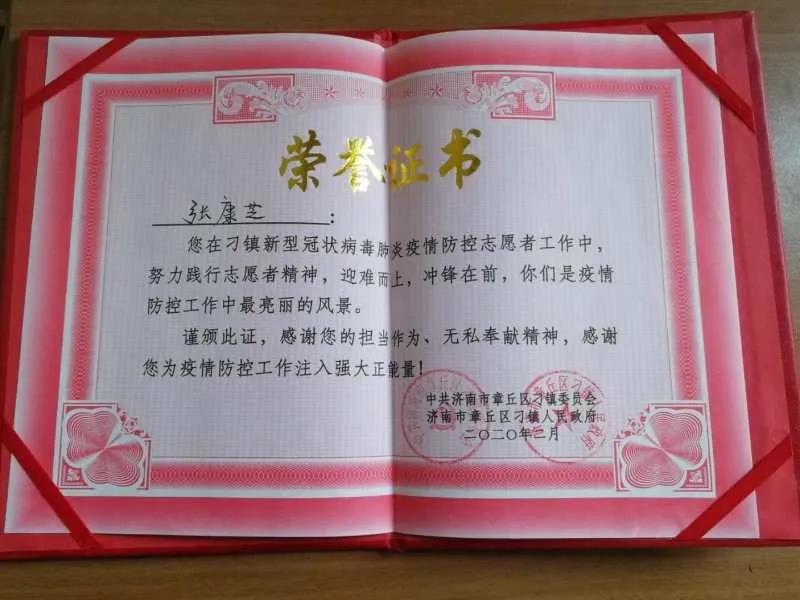 荣誉证书
张康芝：
您在刁镇新型冠状病毒肺炎疫情防控志愿者工作中，
努力践行志愿者精神，迎难而上，冲锋在前，你们是疫情
防控工作中最亮丽的风景。
谨颁此证，感谢您的担当作为、无私奉献精神，感谢
您为疫情防控工作注入强大正能量！
中共济南市章丘区刁镇委员会
济南市章丘区刁镇人民政府
二〇二〇年二月